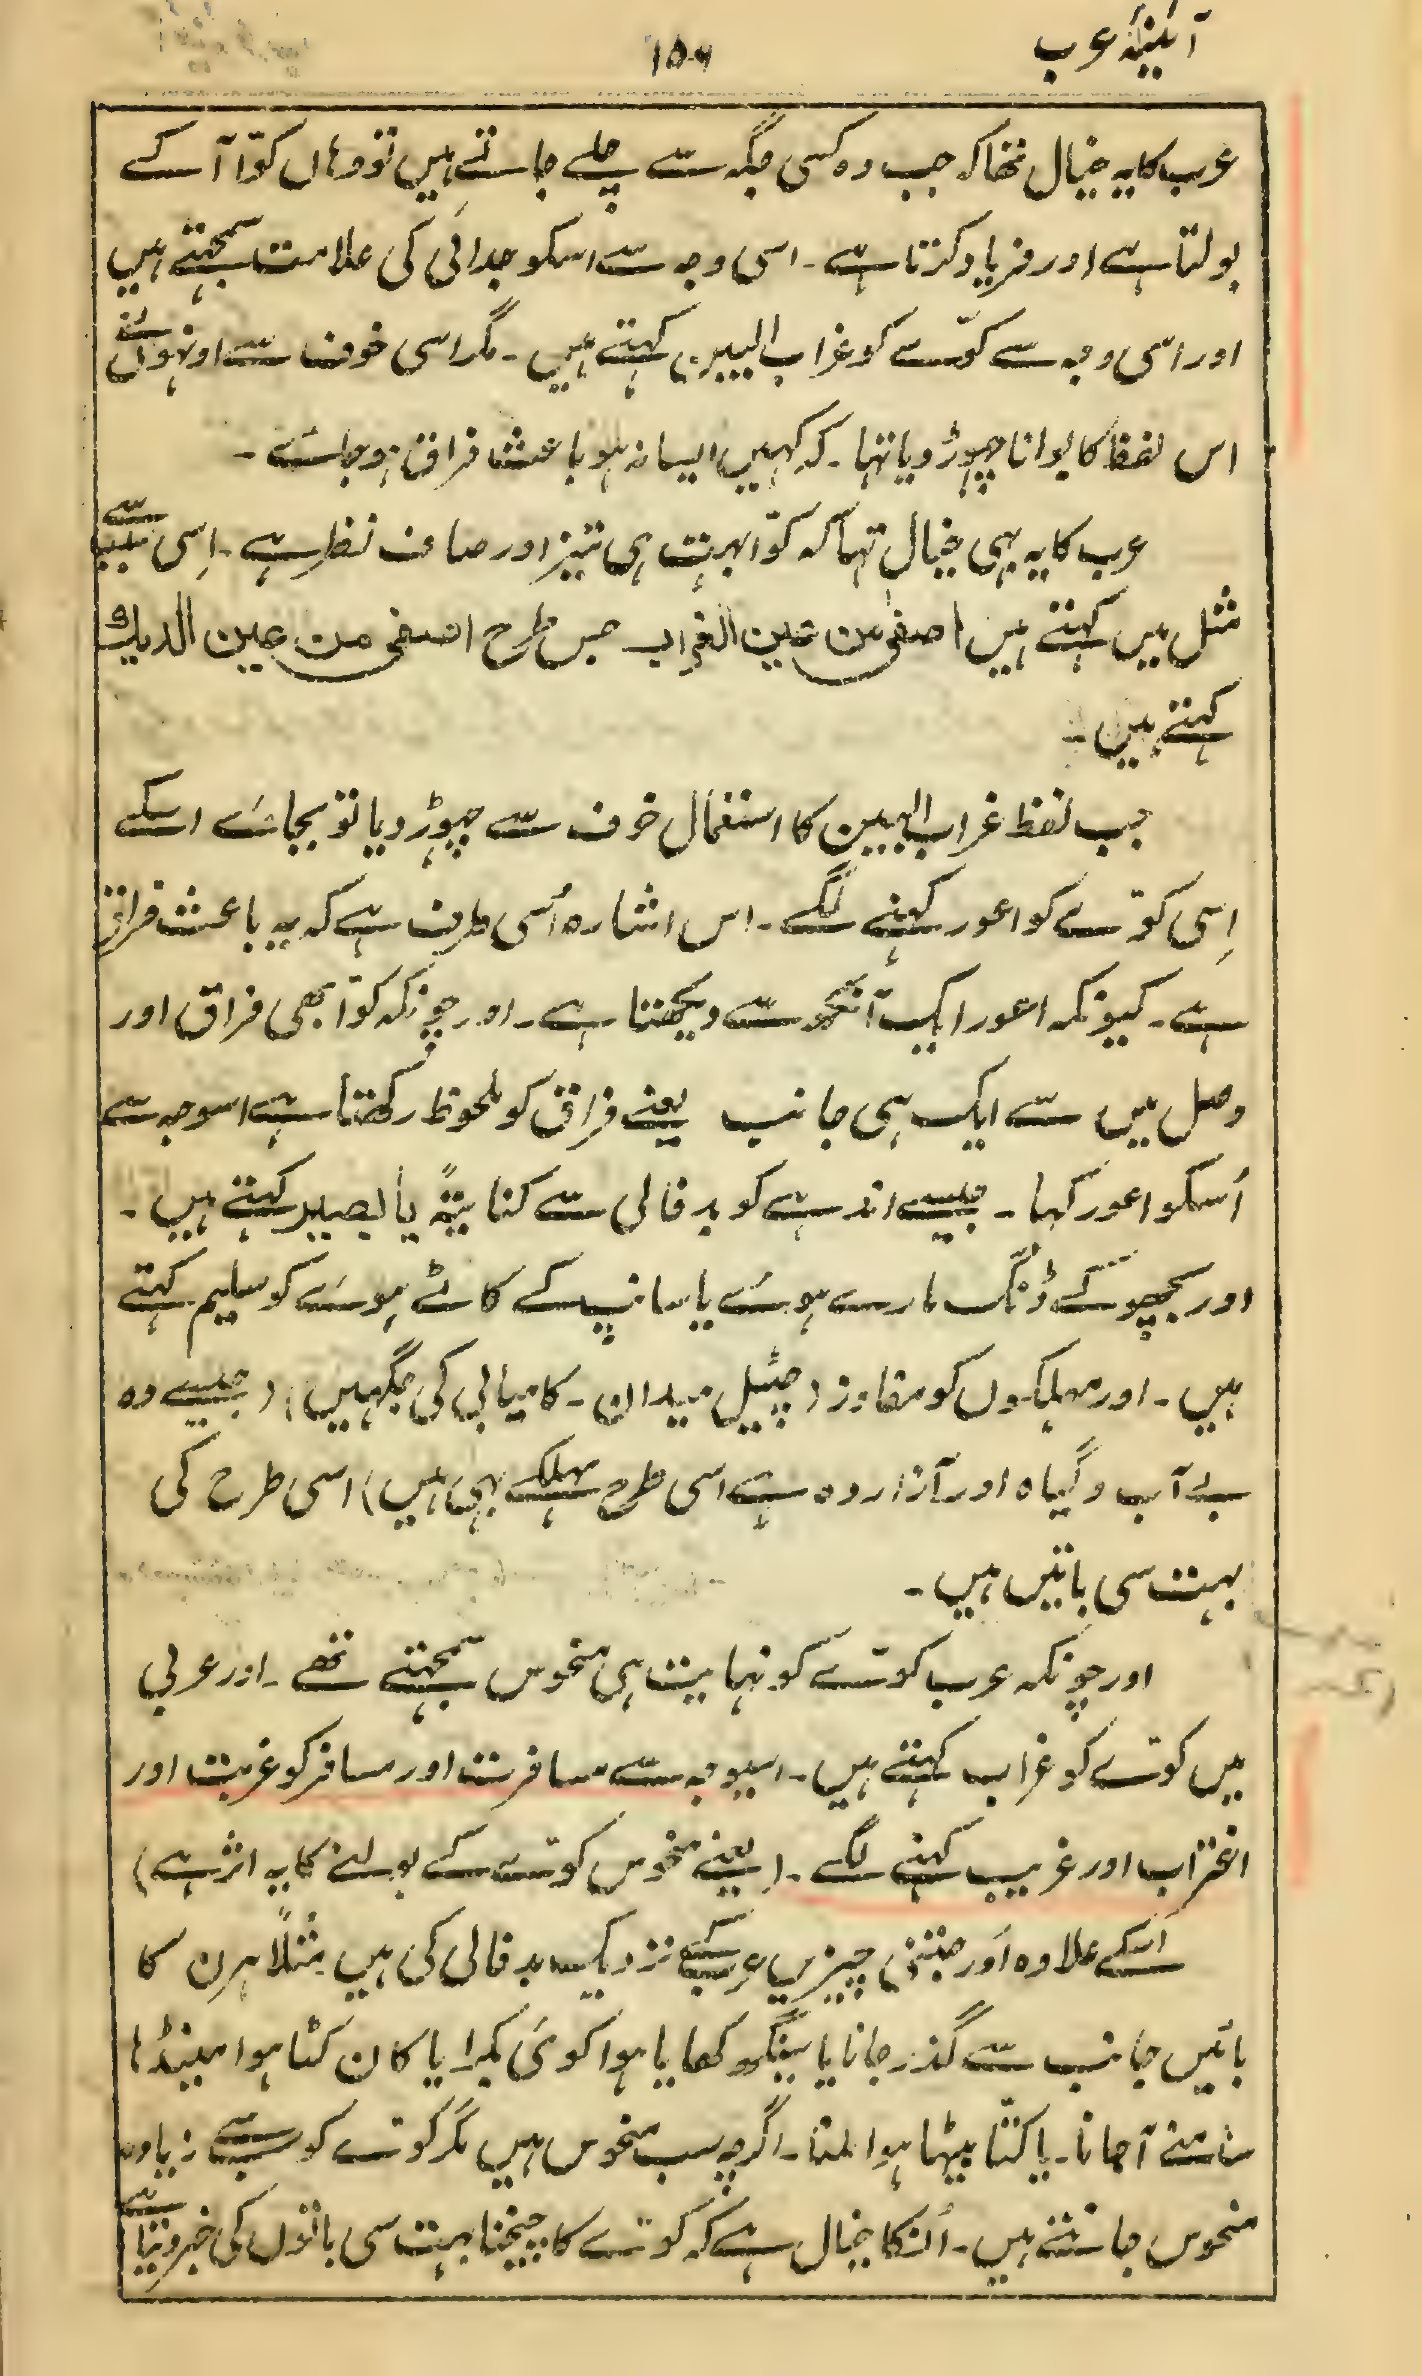 آئینۂ عرب
۱۵۶
عرب کا یہ خیال تھا کہ جب وہ کسی جگہ سے چلے جاتے ہیں تو وہاں کوّا آ کے
بولتا ہے اور فریاد کرتا ہے ۔ اسی وجہ سے اسکو جدائی کی علامت سمجھتے ہیں
اور اسی وجہ سے کوّے کو غراب البین کہتے ہیں ۔ مگر اسی خوف سے اونہوں نے
اس لفظ کا بولنا چھوڑ دیا تہا ۔ کہ کہیں ایسا نہ ہو باعث فراق ہو جائے ۔
عرب کا یہ بہی خیال تہا کہ کوّا بہت ہی تیز اور صاف نظر ہے ۔ اِسی سبب سے
مثل میں کہتے ہیں اصفیٰ من عین الغراب جس طرح اصفی من عین الدیك
کہتے ہیں ۔
جب لفظ غراب البین کا استعمال خوف سے چھوڑ دیا تو بجائے اسکے
اِسی کوّے کو اعور کہنے لگے ۔ اس اشارہ اُسی طرف ہے کہ یہ باعث فراق
ہے ۔ کیونکہ اعور ایک آنکھ سے دیکھتا ہے ۔ اور چونکہ کوّا بھی فراق اور
وصل میں سے ایک ہی جانب یعنے فراق کو ملحوظ رکھتا ہے اسوجہ سے
اُسکو اعور کہا ۔ جیسے اندہے کو بد فالی سے کنایتہً یا بصیر کہتے ہیں ۔
اور بچھو کے ڈنگ مارے ہوئے یا سانپ کے کاٹے ہوئے کو سلیم کہتے
ہیں ۔ اور مہلکوں کو مفاوز (چٹیل میدان ۔ کامیابی کی جگہیں) (جیسے وہ
بے آب و گیاہ اور آزاردہ ہے اسی طرح مہلکے بہی ہیں) اسی طرح کی
بہت سی باتیں ہیں ۔
اور چونکہ عرب کوّے کو نہایت ہی منحوس سمجہتے تھے ۔ اور عربی
میں کوّے کو غراب کہتے ہیں ۔ اسیوجہ سے مسافرت اور مسافر کو غربت اور
اغتراب اور غریب کہنے لگے ۔ (یعنے منحوس کوّے کے بولنے کا یہ اثر ہے)
اسکے علاوہ اَور جتنی چیزیں عرب کے نزدیک بد فالی کی ہیں مثلاً ہرن کا
بائیں جانب سے گذر جانا یا سینگ دکھایا ہوا کوئی بکرا یا کان کٹا ہوا مینڈہا
سامنے آ جانا ۔ یا کتّا بیٹہا ہوا ملنا ۔ اگرچہ سب منحوس ہیں مگر کوّے کو سب سے زیادہ
منحوس جانتے ہیں ۔ اُنکا خیال ہے کہ کوّے کا چیخنا بہت سی باتوں کی خبر دیتا ہے